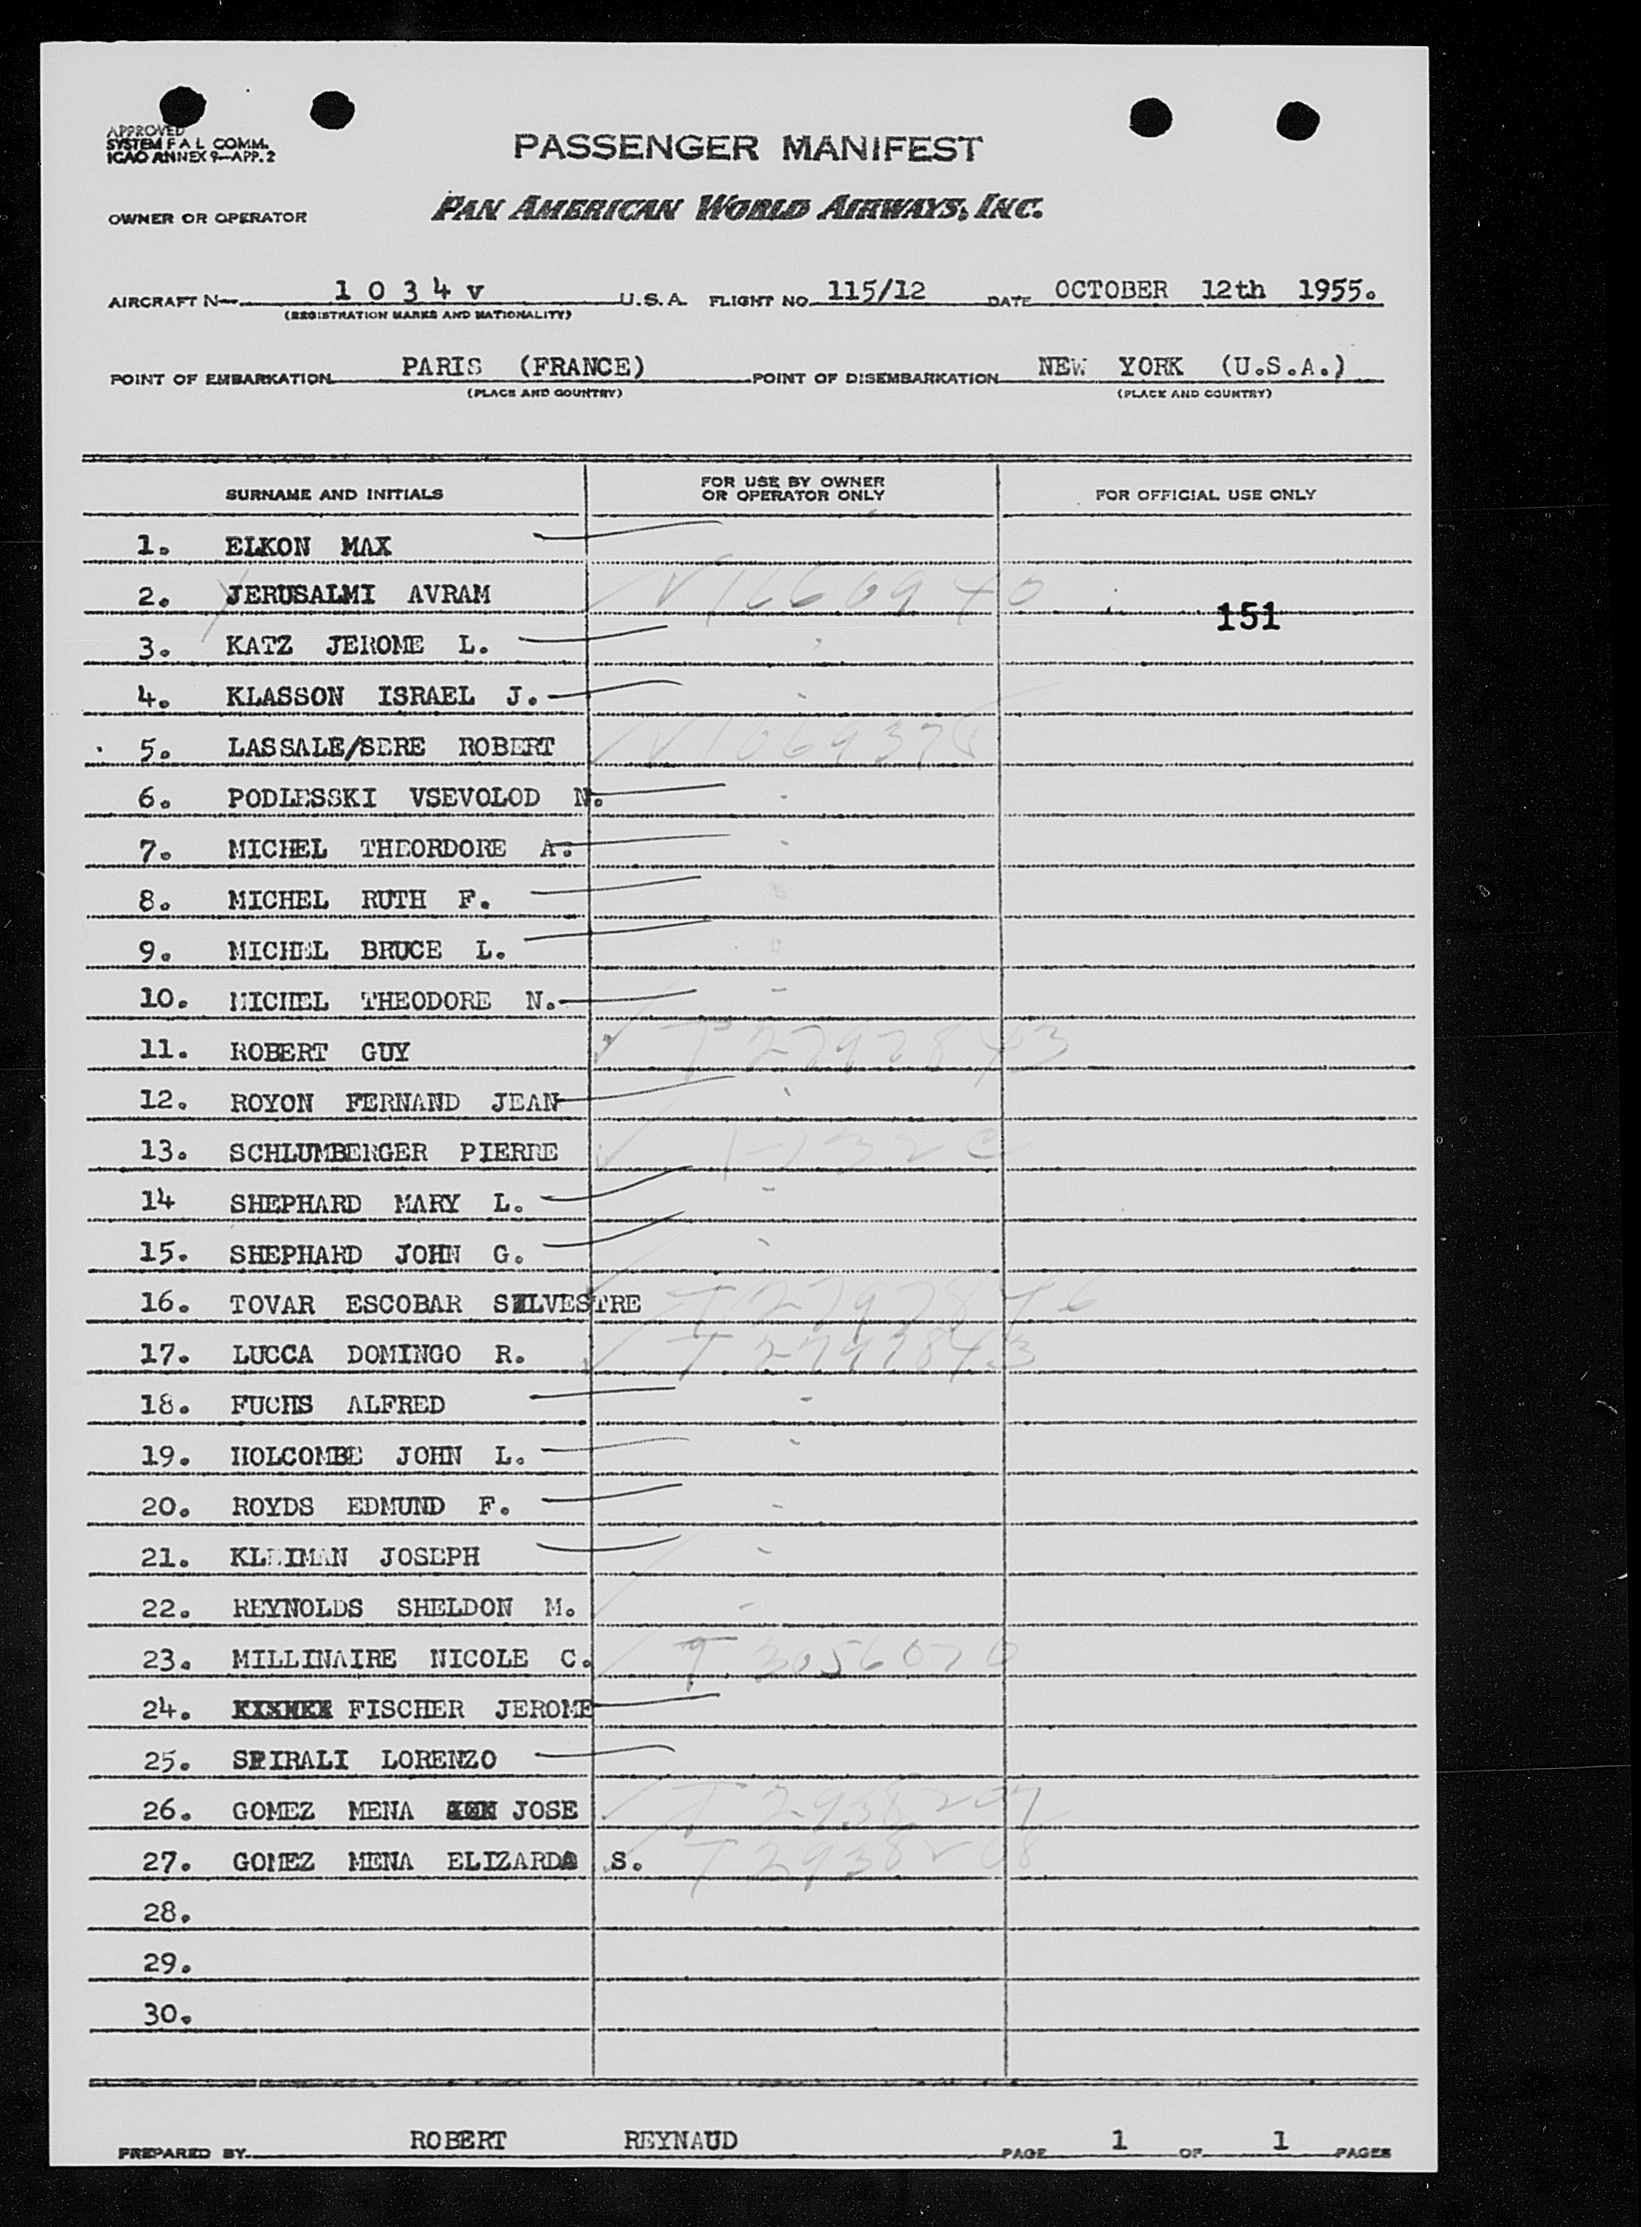 APPROVED
SYSTEM F A L COMM.
ICAO ANNEX 9—APP. 2
PASSENGER MANIFEST
OWNER OR OPERATOR PAN AMERICAN WORLD AIRWAYS, INC.
AIRCRAFT N— 1 0 3 4 v U.S.A. FLIGHT NO. 115/12 DATE OCTOBER 12th 1955.
(REGISTRATION MARKS AND NATIONALITY)
POINT OF EMBARKATION PARIS (FRANCE) POINT OF DISEMBARKATION NEW YORK (U.S.A.)
(PLACE AND COUNTRY) (PLACE AND COUNTRY)
SURNAME AND INITIALS FOR USE BY OWNER OR OPERATOR ONLY FOR OFFICIAL USE ONLY
1. ELKON MAX
2. JERUSALMI AVRAM V1660940
151
3. KATZ JEROME L.
4. KLASSON ISRAEL J.
5. LASSALE/SERE ROBERT V1069378
6. PODLESSKI VSEVOLOD N.
7. MICHEL THEORDORE A.
8. MICHEL RUTH F.
9. MICHEL BRUCE L.
10. MICHEL THEODORE N.
11. ROBERT GUY T2797843
12. ROYON FERNAND JEAN
13. SCHLUMBERGER PIERRE
14 SHEPHARD MARY L.
15. SHEPHARD JOHN G.
16. TOVAR ESCOBAR SILVESTRE T2797846
17. LUCCA DOMINGO R. T2797843
18. FUCHS ALFRED
19. HOLCOMBE JOHN L.
20. ROYDS EDMUND F.
21. KLEIMAN JOSEPH
22. REYNOLDS SHELDON M.
23. MILLINAIRE NICOLE C. T3056070
24. FISCHER JEROME
25. SPIRALI LORENZO
26. GOMEZ MENA JOSE
27. GOMEZ MENA ELIZARDA S.
28.
29.
30.
PREPARED BY ROBERT REYNAUD PAGE 1 OF 1 PAGES